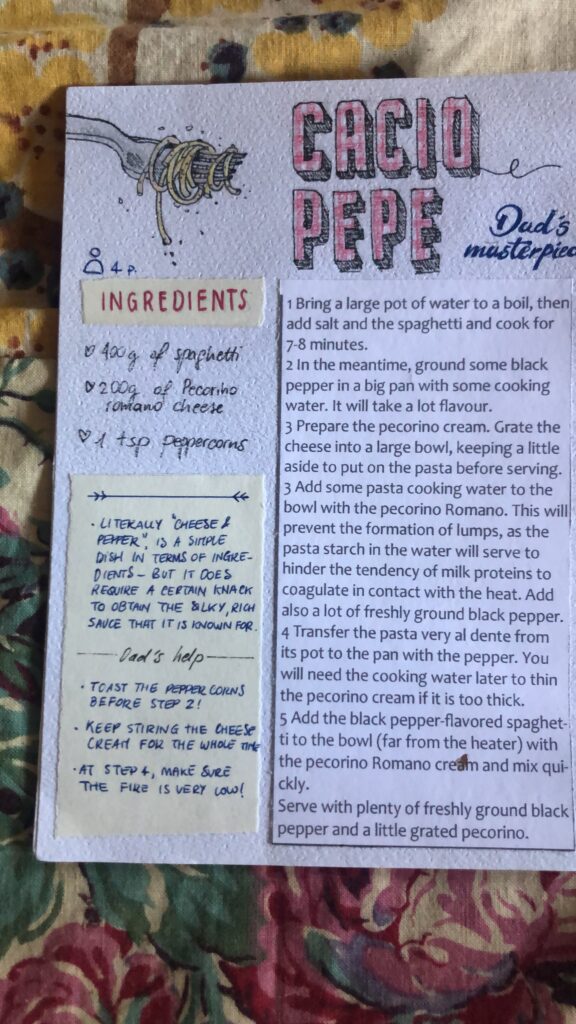 CACIO
PEPE
Dad's
masterpiec
4 p.
INGREDIENTS
400g of spaghetti
200g of Pecorino
romano cheese
1 tsp peppercorns
· LITERALLY "CHEESE &
PEPPER", IS A SIMPLE
DISH IN TERMS OF INGRE-
DIENTS - BUT IT DOES
REQUIRE A CERTAIN KNACK
TO OBTAIN THE SILKY, RICH
SAUCE THAT IT IS KNOWN FOR.
Dad's help
· TOAST THE PEPPERCORNS
BEFORE STEP 2!
· KEEP STIRING THE CHEESE
CREAM FOR THE WHOLE TIME
· AT STEP 4, MAKE SURE
THE FIRE IS VERY LOW!
1 Bring a large pot of water to a boil, then
add salt and the spaghetti and cook for
7-8 minutes.
2 In the meantime, ground some black
pepper in a big pan with some cooking
water. It will take a lot flavour.
3 Prepare the pecorino cream. Grate the
cheese into a large bowl, keeping a little
aside to put on the pasta before serving.
3 Add some pasta cooking water to the
bowl with the pecorino Romano. This will
prevent the formation of lumps, as the
pasta starch in the water will serve to
hinder the tendency of milk proteins to
coagulate in contact with the heat. Add
also a lot of freshly ground black pepper.
4 Transfer the pasta very al dente from
its pot to the pan with the pepper. You
will need the cooking water later to thin
the pecorino cream if it is too thick.
5 Add the black pepper-flavored spaghet-
ti to the bowl (far from the heater) with
the pecorino Romano cream and mix qui-
ckly.
Serve with plenty of freshly ground black
pepper and a little grated pecorino.